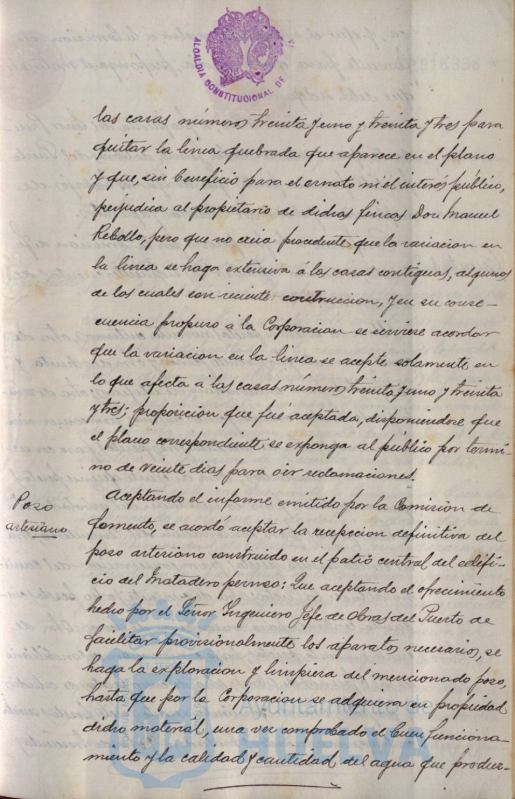 ALCALDIA CONSTITUCIONAL DE
las casas números treinta y uno y treinta y tres para
quitar la linea quebrada que aparece en el plano
y que, sin beneficio para el ornato ni el interés público,
perjudica al propietario de dichas fincas Don Manuel
Rebollo, pero que no creia procedente que la variacion en
la linea se haga extensiva á las casas contiguas, algunos
de los cuales son reciente construccion, y en su conse-
cuencia propuso á la Corporacion se sirviese acordar
que la variacion en la linea se acepte solamente en
lo que afecta á las casas números treinta y uno y treinta
y tres; proposicion que fué aceptada, disponiendose que
el plano correspondiente se exponga al público por térmi-
no de veinte dias para oir reclamaciones.
Poso
artesiano.
Aceptando el informe emitido por la Comisión de
fomento, se acordó aceptar la recepcion definitiva del
poso artesiano construido en el patio central del edifi-
cio del Matadero
Que aceptando el ofrecimiento
hecho por el Señor Ingeniero Jefe de Obras del Puerto de
facilitar provisionalmente los aparatos necesarios, se
haga la exploracion y limpiesa del mencionado poso,
hasta que por la Corporacion se adquiera en propiedad
dicho material, una vez comprobado el buen funciona-
miento y la calidad y cantidad del agua que produz-
Ayuntamiento de
HUELVA